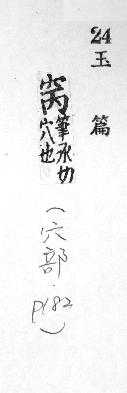 24 玉篇
窉
筆永切
穴也
(穴部.P182)